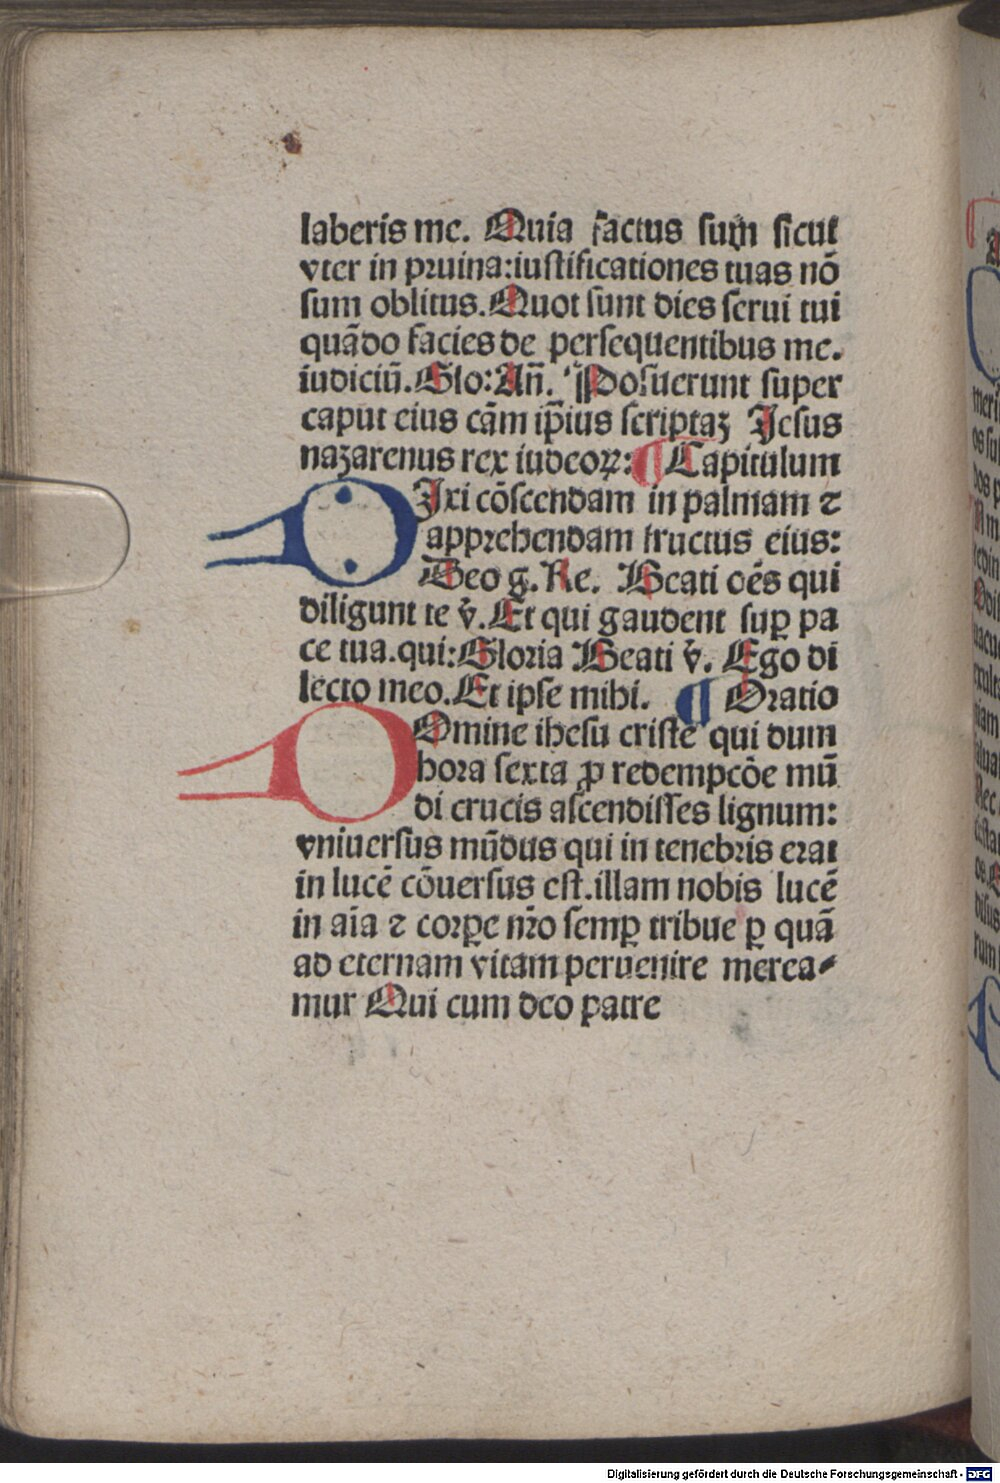 laberis me. Quia factus sum sicut
vter in pruina:iustificationes tuas nō
sum oblitus.Quot sunt dies serui tui
quādo facies de persequentibus me.
iudiciū.Glo:Añ. Posuerunt super
caput eius cām ip̄ius scriptaꝫ Jesus
naʒarenus rex iudeoꝝ: ¶ Capitulum
DJxi cōscendam in palmam ⁊
apprehendam fructus eius:
Deo g. Re. Beati oēs qui
diligunt te v̄. Et qui gaudent suꝑ pa
ce tua.qui:Gloria Beati v̄. Ego di
lecto meo.Et ipse mihi. ¶ Oratio
DOmine ihesu criste qui dum
hora sexta ꝓ redempcōe mū
di crucis ascendisses lignum:
vniuersus mūdus qui in tenebris erat
in lucē cōuersus est.illam nobis lucē
in aīa ⁊ corꝑe nr̄o semꝑ tribue ꝑ quā
ad eternam vitam peruenire merea⸗
mur Qui cum deo patre
Digitalisierung gefördert durch die Deutsche Forschungsgemeinschaft - DFG